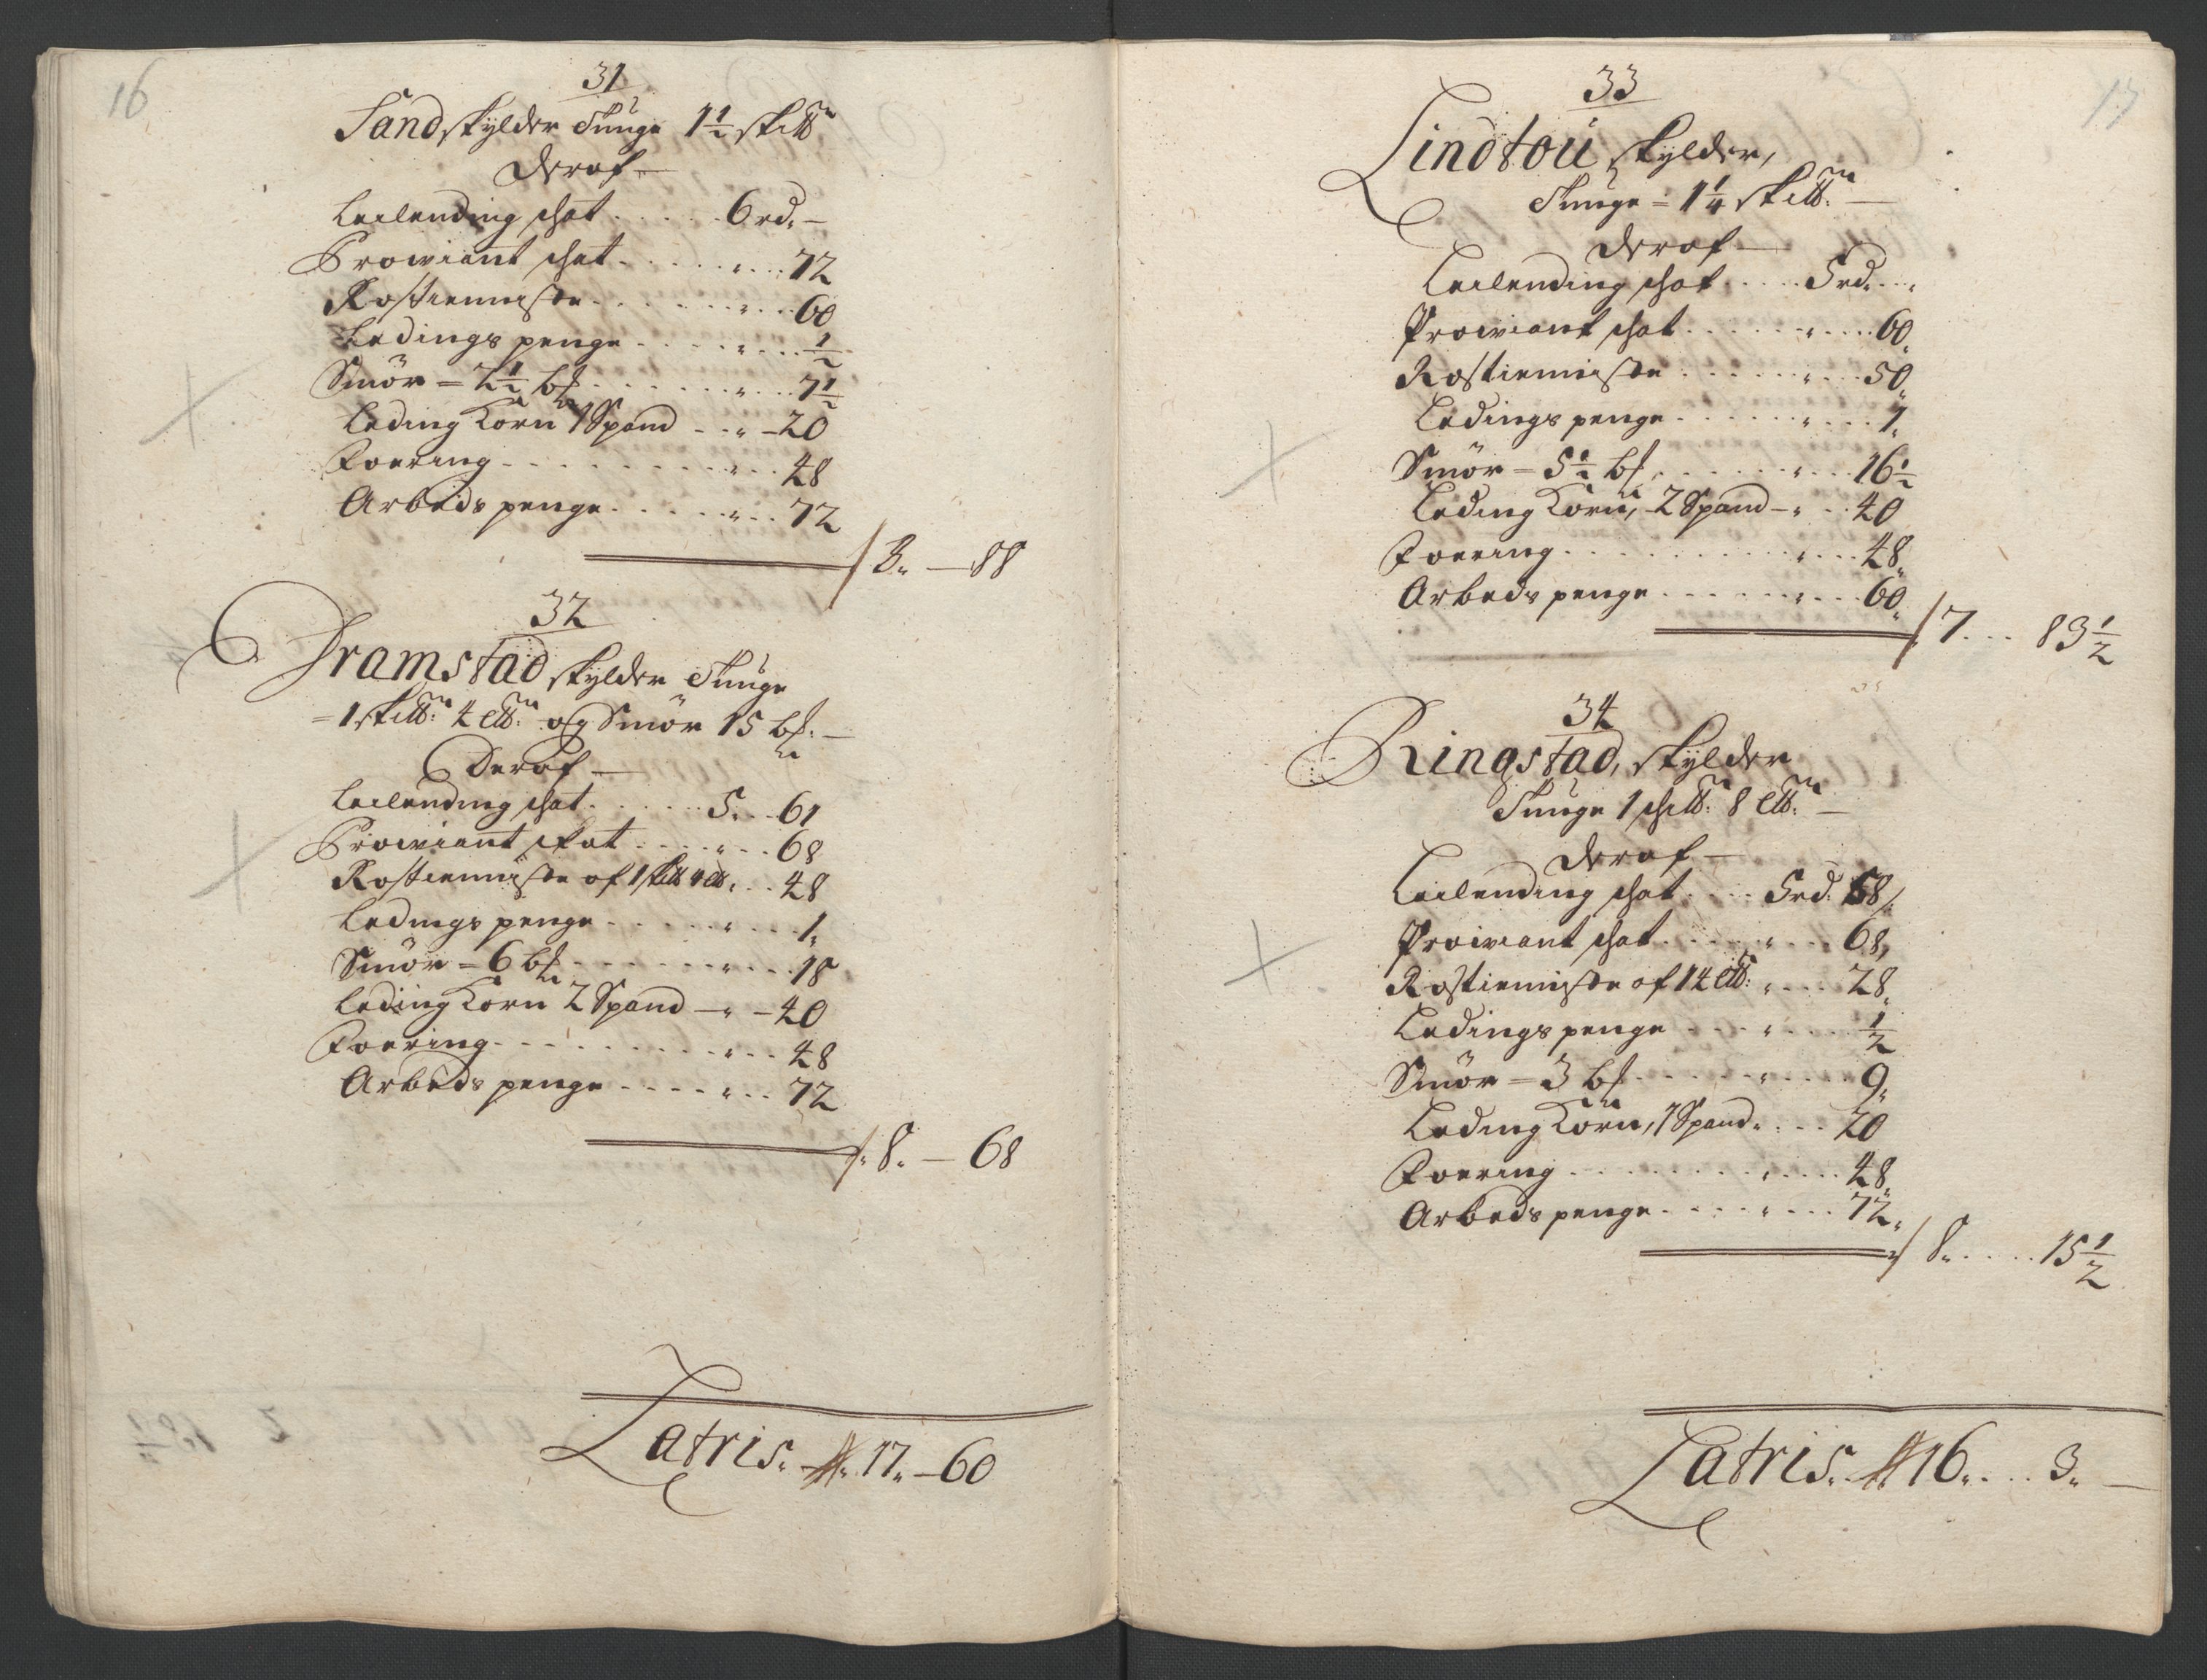 16
31
Sand skylder Tunge 1½ skill
Deraf
Leilending schat . . . . . 6 rd. —
Proviant schat . . . . . " . . 72
Rostienniste . . . . . " . . 60
Ledings penge . . . . " . . ½
Smör = 2½ bl . . . . " . . 7½
Leding Korn 1 Spand - - " - 20
Foering . . . . . . . . " . . 48
Arbeids penge . . . . . " . . 72
/ 8. — 88
32
Dramstad skylder Tunge
= 1 skill: 4 lll: og Smör 15 bl. —
Deraf —
Leilending schat . . . . . . 5. . . 61
Proviant skat . . . . . " . . 68
Rostienniste af 1 skill 4 lll . . 48
Ledings penge . . . . . " . . . 1.
Smör = 6 bl . . . . . " . . . 18
Leding Korn 2 Spand — " — 40
Foering . . . . . . . . " . . 48
Arbeds penge . . . . " . . 72
/. 8. — 68
Latris. 17. — 60
17
33
Lindtou skylder,
Tunge = 1¼ skill. —
Deraf —
Leilending schat . . . . . 5 rd. . . "
Proviant schat . . . . . " . . . 60.
Rostienniste . . . . . " . . . 50.
Ledings penge . . . . . " . . . 1.
Smör = 5½ bl . . . . . " . . . 16½
Leding Korn, 2 Spand — " . . 40
Foering . . . . . . . . " . . . 48.
Arbeds penge . . . . . " . . . 60.
/ 7. . . . 83½
34
Ringstad, skylder
Tunge 1 schill: 8 lll: —
Deraf —
Leilending schat . . . . 5 rd. 58 /.
Proviant schat . . . . . " . . . 68,
Rostienniste af 14 lll: " . . . 28.
Ledings penge . . . . " . . . ½
Smör = 3 bl . . . . . " . . . 9.
Leding Korn, 1 Spand . " . . . 20
Foering . . . . . . . . " . . . 48.
Arbeds penge . . . . " . . . 72.
/ 8. . . . . 15½
Latris. 16. . . . 3. —